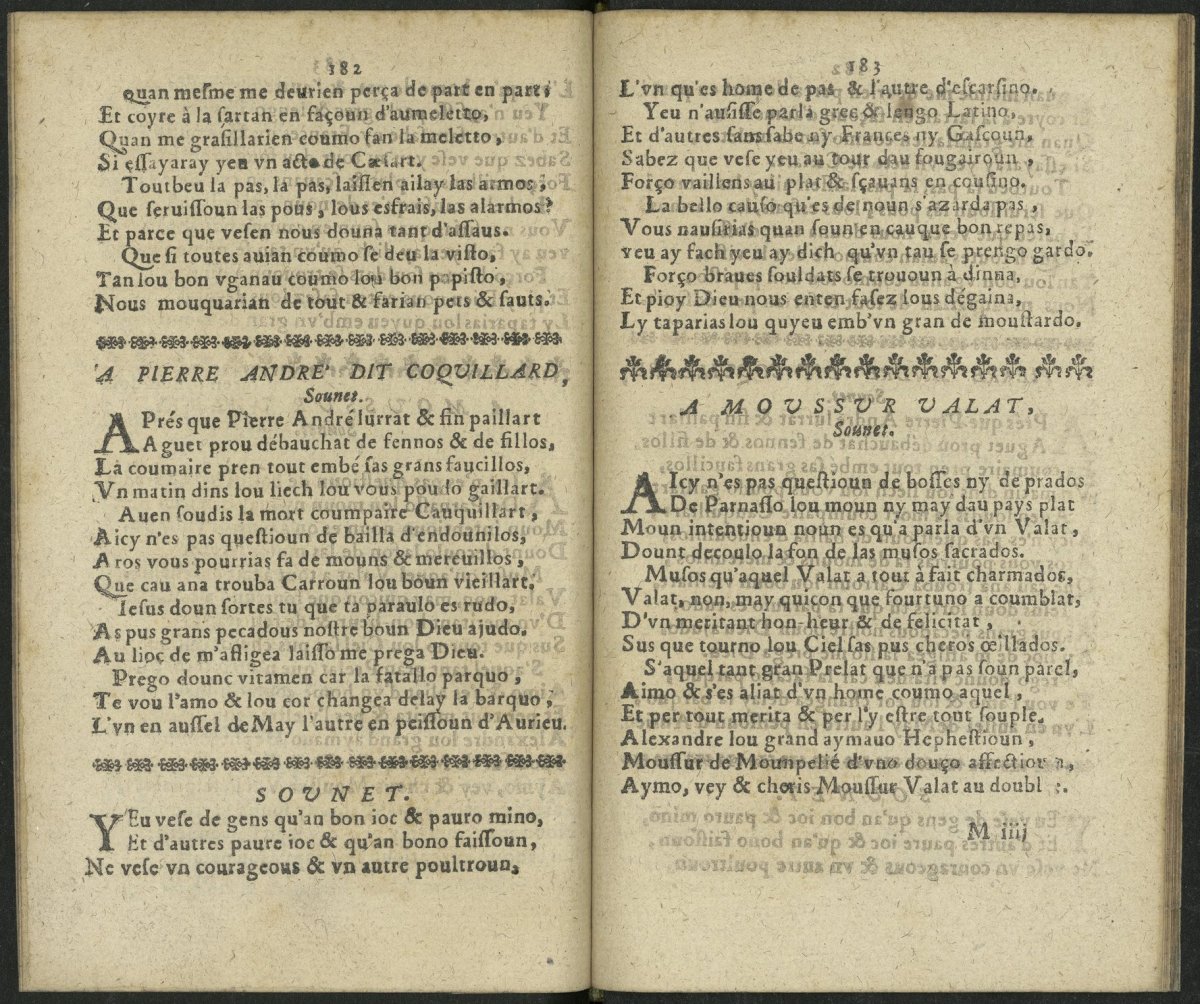 182
Quan mesme me deurien perça de part en part,
Et coyre à la sartan en façoun d'aumeletto,
Quan me grasillarien coumo fan la meletto,
Si essayaray yeu vn acte de Cæsart.
Toutbeu la pas, la pas, laissen ailay las armos,
Que seruissoun las pous, lous esfrais, las alarmos?
Et parce que vesen nous douna tant d'assaus.
Que si toutes auian coumo se deu la visto,
Tan lou bon vganau coumo lou bon papisto,
Nous mouquarian de tout & farian pets & sauts.
A PIERRE ANDRE' DIT COQUILLARD,
Sounet.
APrés que Pierre André lurrat & fin paillart
Aguet prou débauchat de fennos & de fillos,
La coumaire pren tout embé sas grans faucillos,
Vn matin dins lou liech lou vous pou lo gaillart.
Auen soudis la mort coumpaire Cauquillart,
Aicy n'es pas questioun de bailla d'endounilos,
Aros vous pourrias fa de mouns & mereuillos,
Que cau ana trouba Carroun lou boun vieillart.
Iesus doun sortes tu que ta paraulo es rudo,
As pus grans pecadous nostre boun Dieu ajudo.
Au lioc de m'afligea laisso me prega Dieu.
Prego dounc vitamen car la fatallo parquo,
Te vou l'amo & lou cor changea delay la barquo,
L'vn en aussel de May l'autre en peissoun d'Aurieu.
SOUNET.
YEu vese de gens qu'an bon ioc & pauro mino,
Et d'autres paure ioc & qu'an bono faissoun,
Ne vese vn courageous & vn autre poultroun,
183
L'vn qu'es home de pas & l'autre d'escarsino.
Yeu n'ausisse parla grec & lengo Latino,
Et d'autres sans sabe ny Frances ny Gascoun,
Sabez que vese yeu au tour dau fougairoun,
Forço vaillens au plat & sçauans en cousino.
La bello causo qu'es de noun s'azarda pas,
Vous nausirias quan soun en cauque bon repas,
yeu ay fach yeu ay dich qu'vn tau se prengo gardo.
Forço braues souldats se trououn à dinna,
Et pioy Dieu nous enten fasez lous dégaina,
Ly taparias lou quyeu emb'vn gran de moustardo.
A MOUSSUR VALAT,
Sounet.
AIcy n'es pas questioun de bosses ny de prados
De Parnasso lou moun ny may dau pays plat
Moun intentioun noun es qu'à parla d'vn Valat,
Dount decoulo la fon de las musos sacrados.
Musos qu'aquel Valat a tout à fait charmados,
Valat, non, may quicon que fourtuno a coumblat,
D'vn meritant hon-heur & de felicitat,
Sus que tourno lou Ciel sas pus cheros œillados.
S'aquel tant gran Prelat que n'a pas soun parel,
Aimo & s'es aliat d'vn home coumo aquel,
Et per tout merita & per l'y estre tout souple.
Alexandre lou grand aymauo Hephestioun,
Moussur de Mounpelié d'vno douço affectioun,
Aymo, vey & cheris Moussur Valat au doubl :.
M iiij